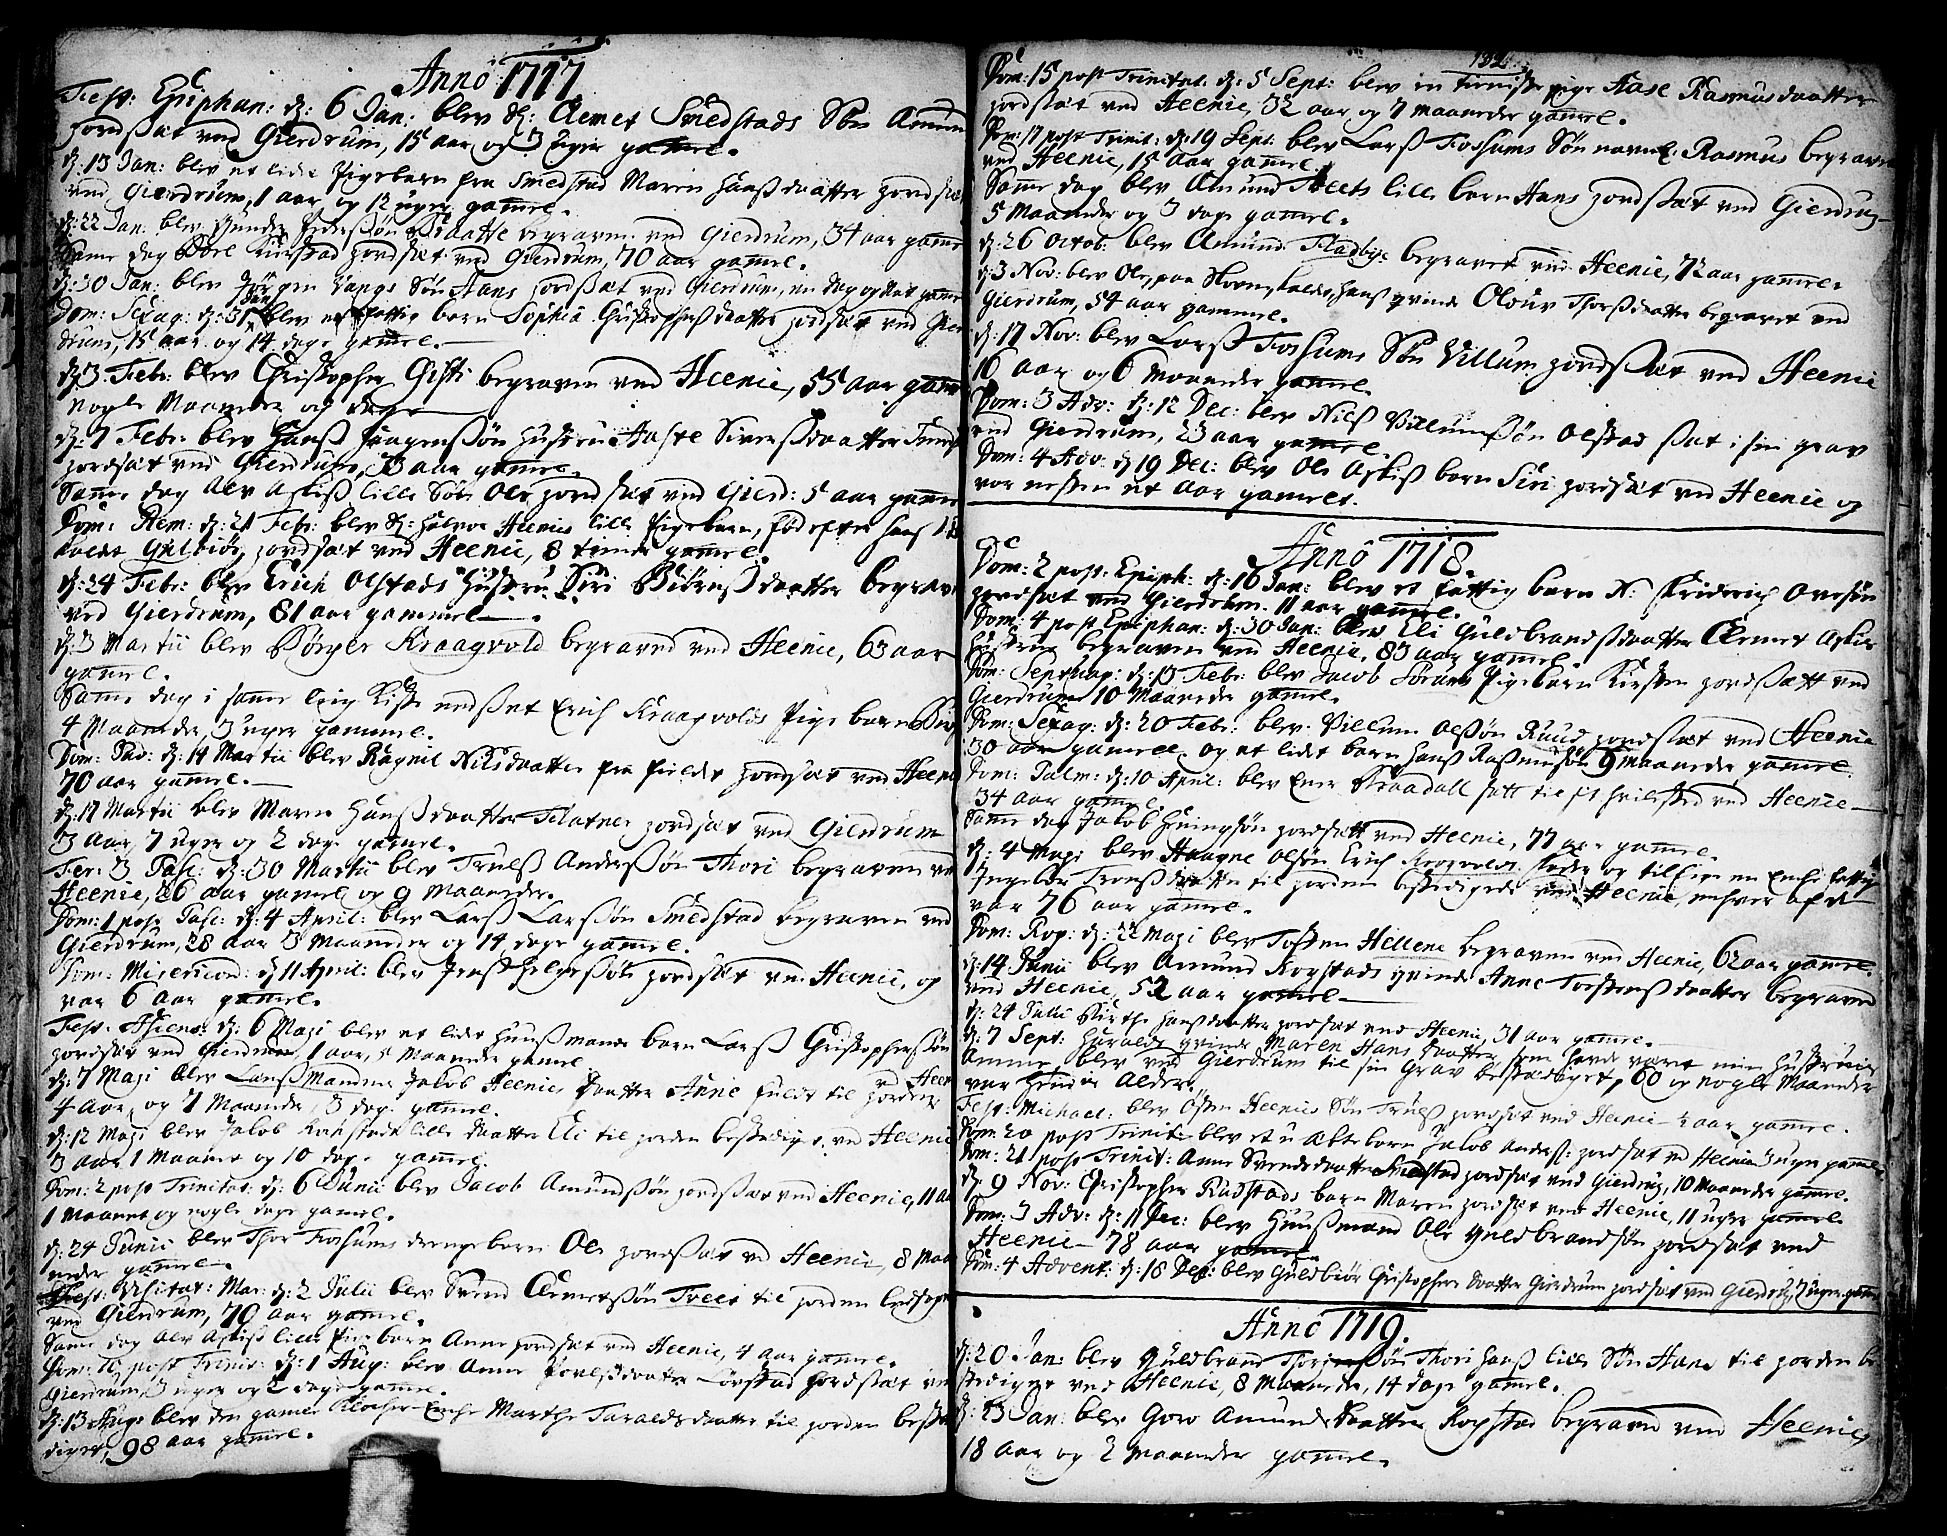 Anno 1717.
Fest: Epiphan: d: 6 Jan: blev Clemet Smedstads Søn Amund
jordsat ved Gierdrum, 15 aar og 3 uger gamel.
d: 13 Jan: blev et lidet Pigebarn fra Smedstad Maren Hansdaatter jordsat
ved Gierdrum, 1 aar og 12 uger gamel.
d: 22 Jan: blev Gunder Pedersøn Braatte begraven ved Gierdrum, 34 aar gamel
Same dag Kirstad jordsat ved Gierdrum, 70 aar gamel.
d: 30 Jan: blev Jørgen Vangs Søn Hans jordsat ved Gierdrum, en dag og Nat gamel
Dom: Sexag: d: 31 Jan blev et fattig barn Sophia Christophersdaatter jordsat ved Gier
drum, 15 aar og 14 dage gamel.
d: 3 Febr: blev Christopher begraven ved Heenie, 55 aar gamel
nogle Maaneder og dage
d: 7 Febr: blev Hans Haagensøn Hustru Aaste Siversdaatter
jordsat ved Gierdrum, 73 aar gamel.
Same dag Alv Askis lille Søn Ole jordsat ved Gierd: 5 aar gamel
Dom: Rem: d: 21 Febr: blev Halvor Heenies lille Pigebarn, fød efter hans
kaldet Gulbiør, jordsat ved Heenie, 8 timer gamel.
d: 24 Febr: blev Erich Olstads Hustru Siri Biørnsdaatter begraven
ved Gierdrum, 81 aar gammel.
d: 3 Martii blev Børger Kraagvold begraved ved Heenie, 63 aar
gamel.
Same dag i same Liig Kiste nedsat Erich Kraagvolds Pige barn
4 Maaneder, 3 uger gammel.
Dom: d: 14 Martii blev Ragnil Nilsdaatter fra jordsat ved Heenie
70 aar gamel.
d: 17 Martii blev Maren Hansdaatter Flatner jordsat ved Gierdrum
3 Aar, 7 uger og 2 dage gamel.
Fer: 3 Pasc: d: 30 Martii blev Truls Andersøn Thori begraven ved
Heenie, 26 aar gamel og 9 Maaneder.
Dom: 1 post Pasc: d: 4 April: blev Lars Larsøn Smedstad begraven ved
Gierdrum, 28 aar 3 Maaneder og 14 dage gamel.
Dom: Misericord: d 11 April: blev Jens Helgesøn jordsat ved Heenie, og
var 6 aar gamel.
Fest: Ascens: d: 6 Maji blev et lidet Huusmands barn Lars Christophersøn
jordsat ved Gierdrum, 1 aar, Maaneder gamel
d: 7 Maji blev Lansmandens Jakob Heenies daatter Anne fuldt til jorden ved Heenie
4 Aar, og 7 Maaneder, 3 dage gamel.
d: 12 Maji blev Jakob lille daatter Eli til jorden bestædiget ved Heenie
3 aar 1 Maanet og 10 dage gamel.
Dom: 2 post Trinitat: d: 6 Junii blev Jacob Amundsøn jordsat ved Heenie, 11 aar
1 Maanet og nogle dage gamel.
d: 24 Junii blev Thor Fossums drengebarn Ole jordsat ved Heenie, 8 Maa
neder gamel.
Fest: Visitat: Mar: d: 2 Julii blev Svend Clemetsøn Tveit til jorden
ved Gierdrum, 70 aar gamel.
Same dag Alv Askis lille Pige barn Anne jordsat ved Heenie, 4 aar gamel.
Dom: 10 post Trinit: d: 1 Aug: blev Anne Povelsdaatter Lørstad jordsat ved
Gierdrum, 3 uger og 2 dage gamel.
d: 13 Aug: blev den gamle Enche Marthe Taraldsdaatter til jorden bestæ
diget, 98 aar gamel.
132
Dom: 15 post Trinitat. d: 5 Sept: blev en pige Aase Rasmusdaatter
jordsat ved Heenie, 32 aar og 7 maaneder gamel.
Dom: 17 post Trinit: d: 19 Sept: blev Lars Fossums Søn navnl. Rasmus begraven
ved Heenie, 15 aar gamel.
Same dag blev Amund Tveets lille barn Hans jordsat ved Gierdrum
5 Maaneder og 3 dage gamel.
d: 26 Octob: blev Amund Fladbye begravet ved Heenie, 72 aar gamel.
d: 3 Nov: blev Ole, paa kaldes, hans qvinde Oluuv Thorsdaatter begravet ved
Gierdrum, 54 aar gammel.
d: 17 Nov: blev Lars Fossums Søn Villum jordsat ved Heenie
16 aar og 6 Maaneder gamel.
Dom: 3 Adv: d: 12 Dec: blev Nils Villumsøn Olstad sat i sin grav
ved Gierdrum, 23 aar gamel.
Dom: 4 Adv: d 19 Dec: blev Ole Askis barn Siri jordsat ved Heenie og
var nesten et Aar gamelt.
Anno 1718.
Dom: 2 post: Epiph: d: 16 Jan: blev et fattig barn N: Friderich Ovesøn
jordsat ved Gierdrum. 11 aar gamel.
Dom: 4 post Epiphan: d: 30 Jan: blev Eli Guldbrandsdaatter Clemet Askis
Hustrue begraven ved Heenie, 83 aar gamel.
Dom: Septuag: d: 13 Febr: blev Jacob Pigebarn Kirsten jordsatt ved
Gierdrum 10 Maaneder gamel.
Dom: Sexag: d: 20 Febr: blev Villum Olsøn Ruud jordsat ved Heenie
30 aar gamel. og et lidet barn Hans Rasmusøn 9 maaneder gamel.
Dom: Palm: d: 10 April: blev Ener Braadall satt til sit hvilested ved Heenie
34 aar gamel.
Same dag Jakob jordsatt ved Heenie, 77 aar gamel.
d: 4 Maji blev Haagne Olsøn Erich Kragvolds fader og tillige en Enche fattig
Ingebor Tronsdaatter til jorden bestediged ved Heenie, enhver af dem
var 76 aar gamel.
Dom: Rog: d: 22 Maji blev Tosten Hellene begraven ved Heenie, 62 aar gamel.
d: 14 Junii blev Amund Rogstads qvinde Anne Torstensdaatter begraved
ved Heenie, 52 aar gamel
d: 24 Julii Birthe Hansdaatter jordsat ved Heenie, 31 aar gamel.
d: 7 Sept: Haralds qvinde Maren Hans daatter, som havde været min Hustrues
Amme blev ved Gierdrum til sin Grav bestædiget, 60 og nogle Maaneder
var hendes Alder.
Fest: Michael: blev Østen Heenies Søn Truls jordsat ved Heenie 2 aar gamel.
Dom: 20 post Trinit blev et u ægte barn Jakob Anders: jordsat ved Heenie 3 uger gamel
Dom: 21 post Trinit: Anne Svendsdaatter Smedstad jordsat ved Gierdrum, 10 Maaneder gamel.
d: 9 Nov: Christopher Rudstads barn Maren jordsat ved Heenie, 11 uger gamel.
Dom: 3 Adv: d: 11 Dec: blev Huusmand Ole Guldbrandsøn jordsat ved
Heenie 78 aar gamel.
Dom: 4 Advent: d: 18 Dec: blev Guldbiør Christophers daatter Gierdrum jordsat ved Gierdrum, 7 uger gamel
Anno 1719.
d: 20 Jan: blev Guldbrand Thori hans lille Søn Hans til jorden be
stediget ved Heenie, 8 Maaneder, 14 dage gamel.
d: 23 Jan: blev Goro Amunds daatter Rogstad begraved ved Heenie,
18 aar og 2 Maaneder gamel.